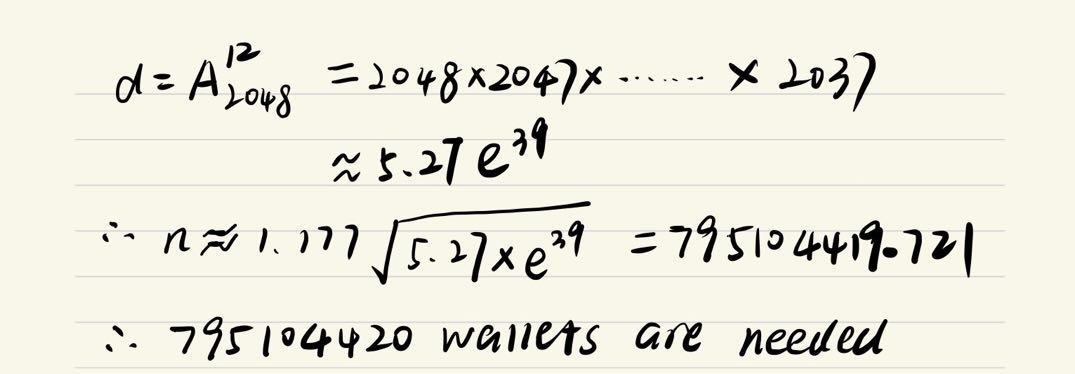 d = A_{2048}^{12} = 2048×2047×⋯⋯×2037
≈ 5.27 e^{39}
∴ n ≈ 1.177 √(5.27×e^{39}) = 795104419.721
∴ 795104420 wallets are needed